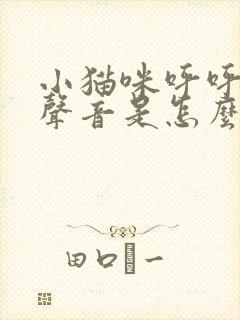 小猫咪呼呼
聲音是怎麼
田口 一